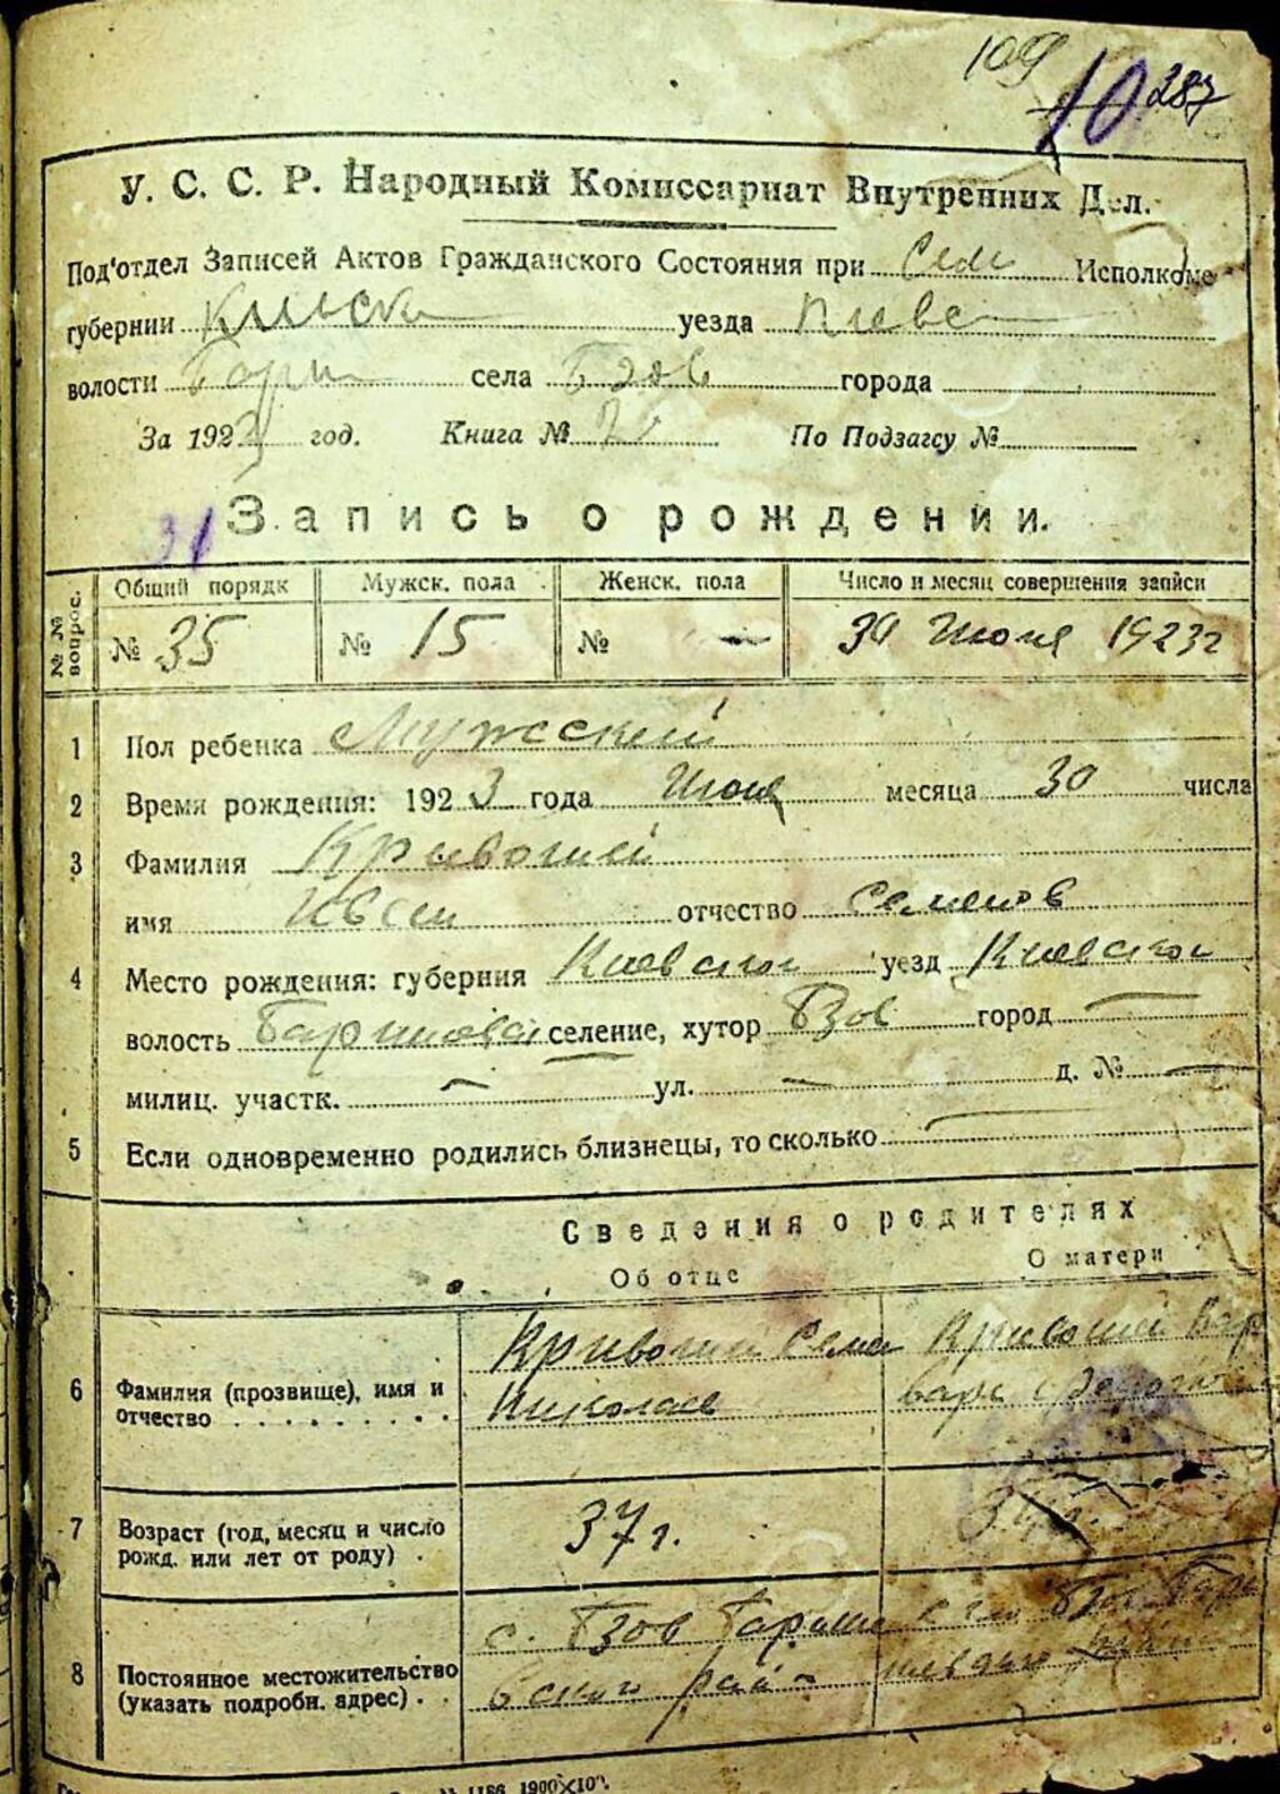 109
10 287
У. С. С. Р. Народный Комиссариат Внутренних Дел.
Под'отдел Записей Актов Гражданского Состояния при Исполкоме
губернии уезда Киевс
волости Бариш села Бзов города
За 1923 год. Книга № По Подзагсу №
31 Запись о рождении.
№№ вопрос. Общий порядк Мужск. пола Женск. пола Число и месяц совершения записи
№ 35 № 15 № — 30 Июня 1923г
1 Пол ребенка Мужеский
2 Время рождения: 1923 года Июня месяца 30 числа
3 Фамилия Кривоший
имя Иван отчество Семенов
4 Место рождения: губерния Киевской уезд Киевской
волость селение, хутор Бзов город —
милиц. участк. — ул. — д. № —
5 Если одновременно родились близнецы, то сколько —
Сведения о родителях
Об отце О матери
Кривоший Семен Кривоший Вар
6 Фамилия (прозвище), имя и Николаев вара
отчество . . . . . . . . .
7 Возраст (год, месяц и число 37 г.
рожд. или лет от роду) .
с. Бзов Барише Бзов Бари
8 Постоянное местожительство вского рай-
(указать подробн. адрес) . .
1186 1900×10